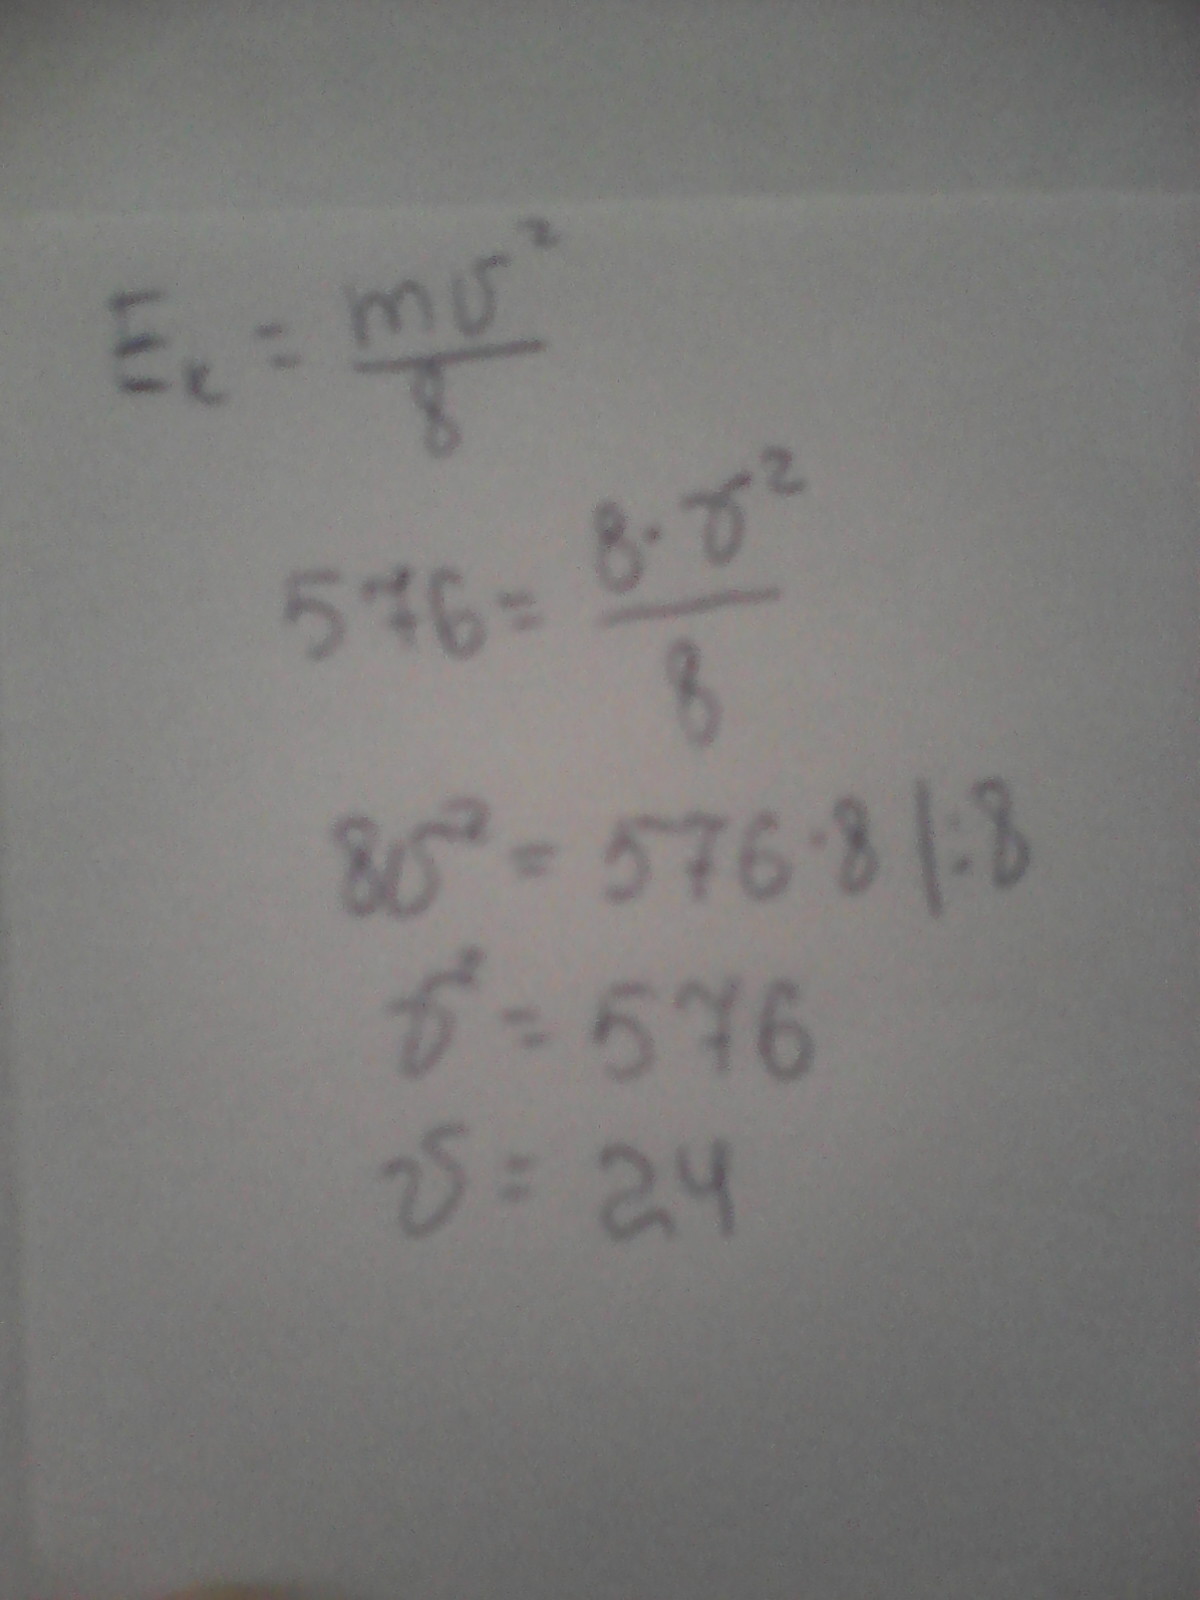 Eк = mv²/8
576 = 8·v²/8
8v² = 576·8 |:8
v² = 576
v = 24